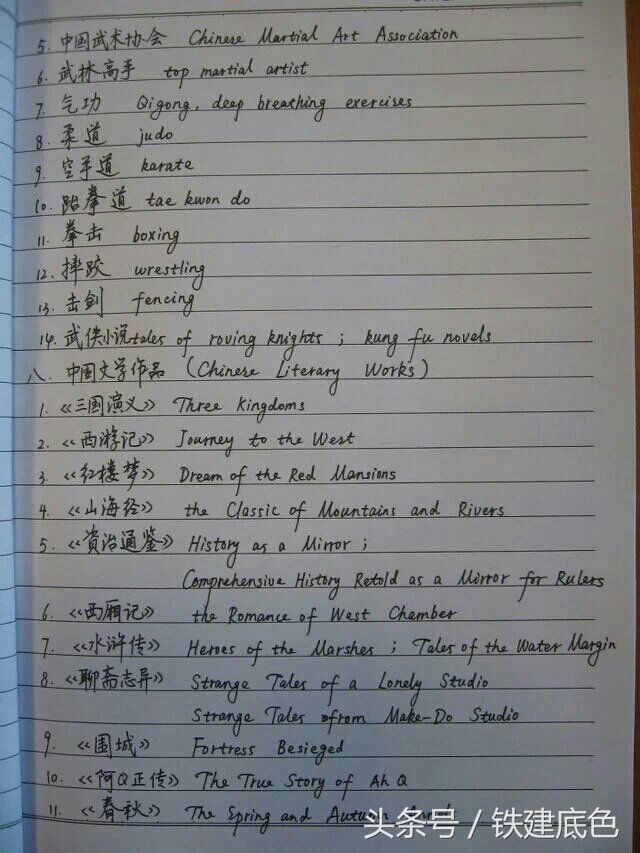 5. 中国武术协会 Chinese Martial Art Association
6. 武林高手 top martial artist
7. 气功 Qigong, deep breathing exercises
8. 柔道 judo
9. 空手道 karate
10. 跆拳道 tae kwon do
11. 拳击 boxing
12. 摔跤 wrestling
13. 击剑 fencing
14. 武侠小说 tales of roving knights ; kung fu novels
八. 中国文学作品 (Chinese Literary Works)
1. 《三国演义》 Three Kingdoms
2. 《西游记》 Journey to the West
3. 《红楼梦》 Dream of the Red Mansions
4. 《山海经》 the Classic of Mountains and Rivers
5. 《资治通鉴》 History as a Mirror ;
Comprehensive History Retold as a Mirror for Rulers
6. 《西厢记》 the Romance of West Chamber
7. 《水浒传》 Heroes of the Marshes ; Tales of the Water Margin
8. 《聊斋志异》 Strange Tales of a Lonely Studio
Strange Tales ofrom Make-Do Studio
9. 《围城》 Fortress Besieged
10. 《阿Q正传》 The True Story of Ah Q
11. 《春秋》 The Spring and Autumn
头条号 / 铁建底色